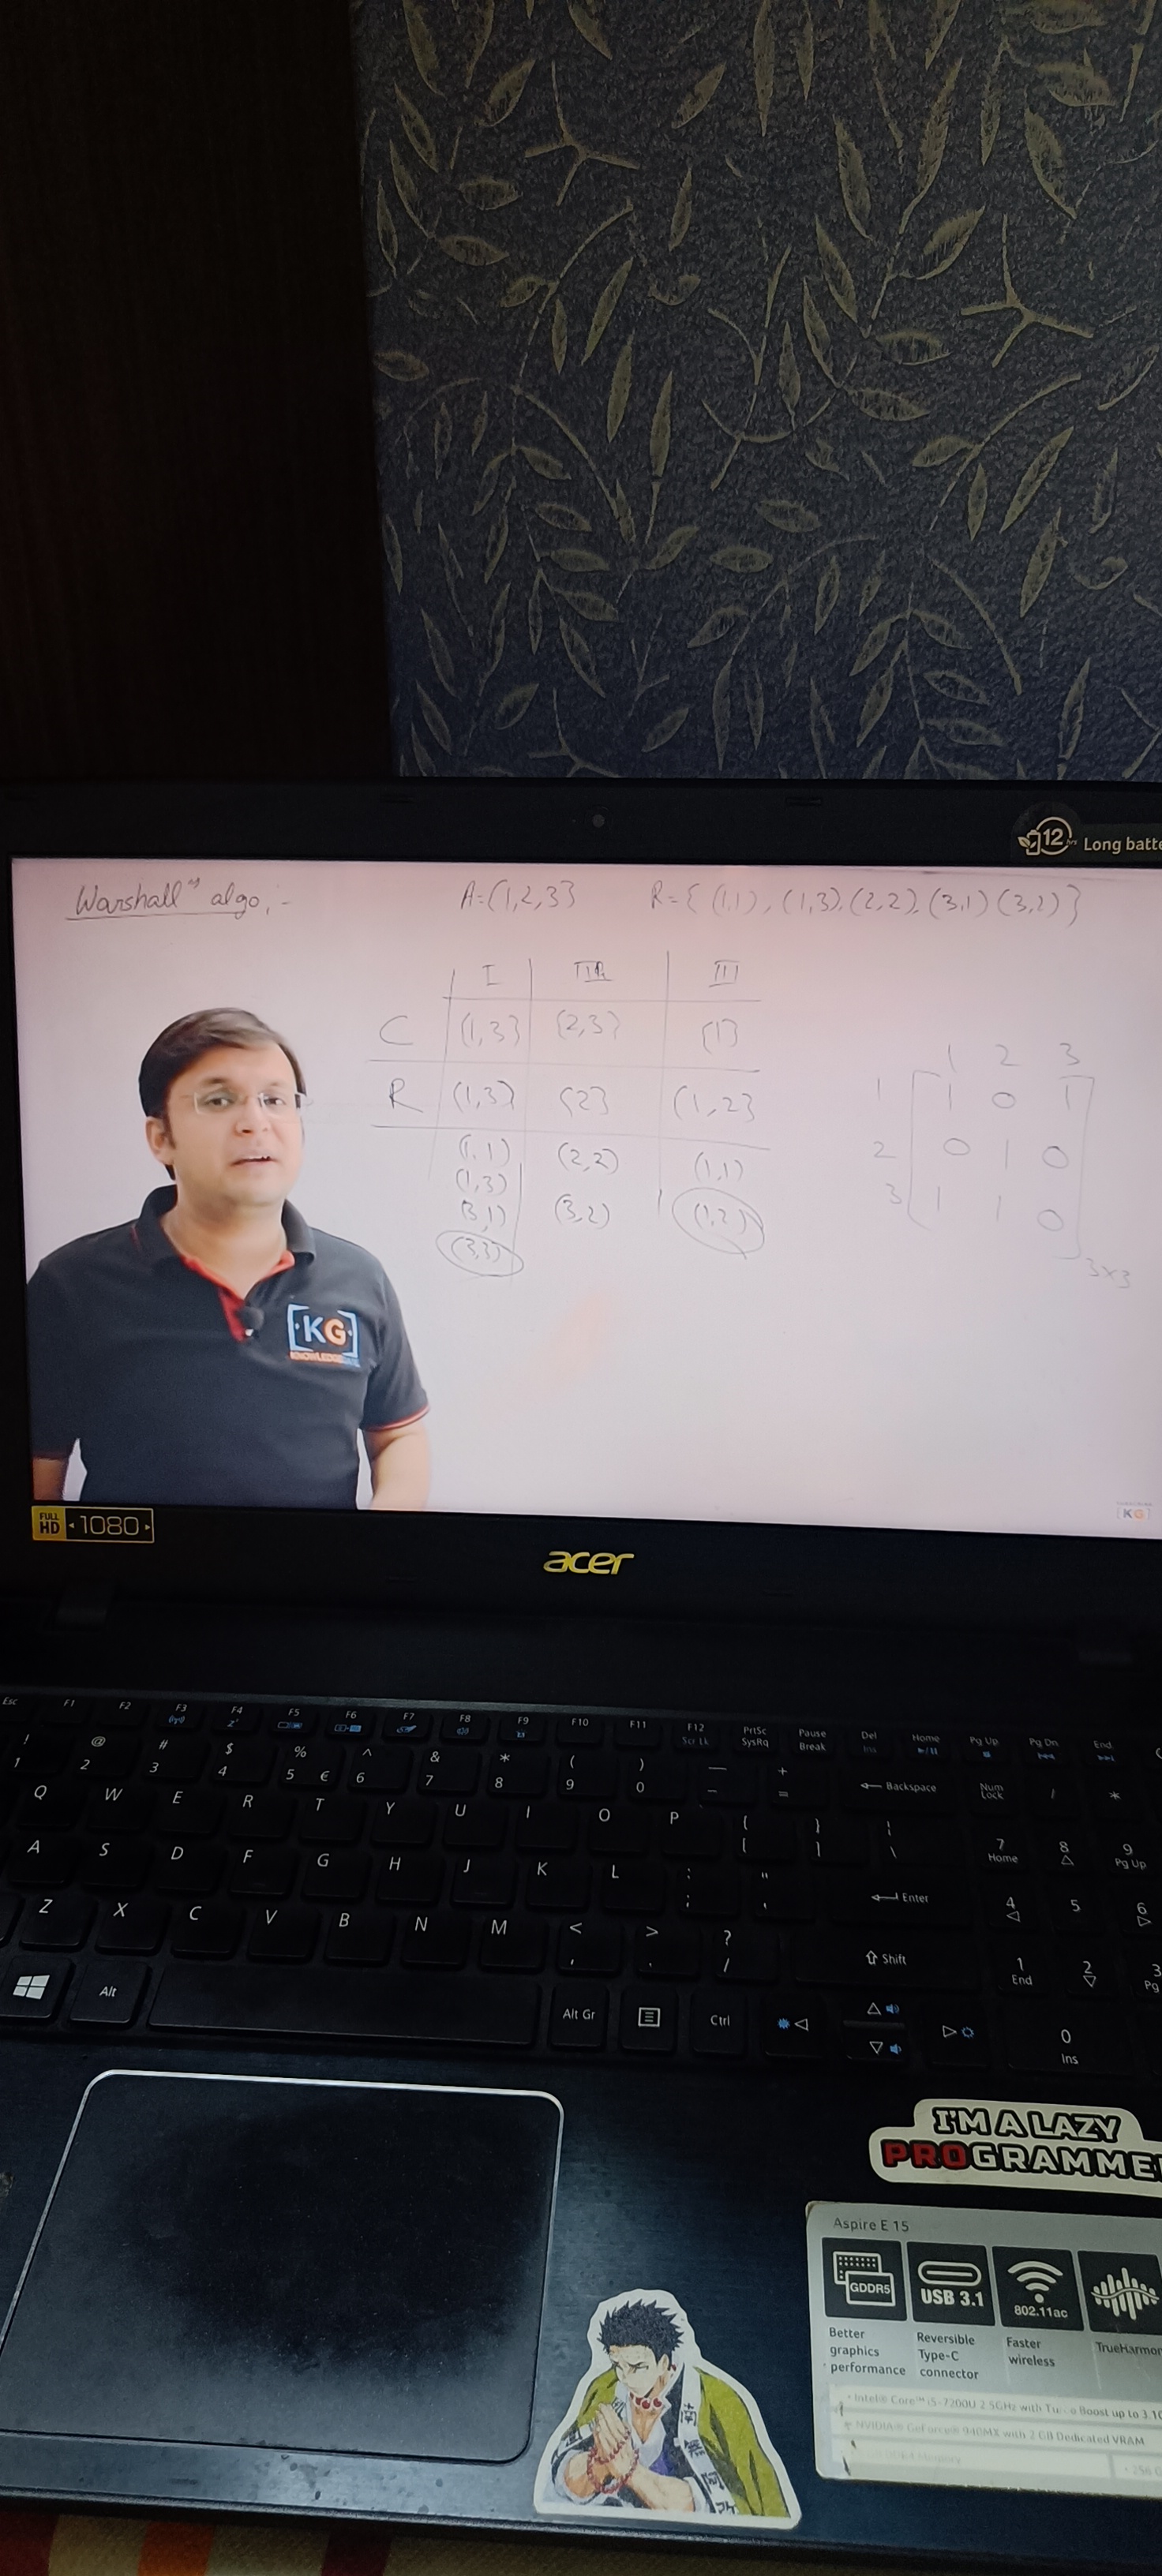 12 hrs Long batte
Warshall" algo,-
A={1,2,3}
R={ (1,1), (1,3), (2,2), (3,1) (3,2)}
I
III
C {1,3} {2,3} {1}
R {1,3} {2} {1,2}
(1,1) (2,2) (1,1)
(1,3)
(3,1) (3,2) (1,2)
(3,3)
1 2 3
1 1 0 1
2 0 1 0
3 1 1 0
3×3
[KG]
KNOWLEDGE
[KG]
FULL HD 1080
acer
Esc F1 F2 F3 F4 F5 F6 F7 F8 F9 F10 F11 F12 PrtSc Pause Del Home Pg Up Pg Dn End
Scr Lk SysRq Break Ins
! @ # $ % ^ & * ( ) _ +
1 2 3 4 5 € 6 7 8 9 0 - = Backspace Num Lock / *
Q W E R T Y U I O P { } |
[ ] \ 7 Home 8 9 Pg Up
A S D F G H J K L : "
; ' Enter 4 5 6
Z X C V B N M < > ?
, . / Shift 1 End 2 3 Pg
Alt Alt Gr Ctrl
0 Ins
I'M A LAZY
PROGRAMME
Aspire E 15
GDDR5 USB 3.1 802.11ac
Better graphics performance
Reversible Type-C connector
Faster wireless
TrueHarmon
• Intel® Core™ i5-7200U 2.5GHz with Turbo Boost up to 3.1G
• NVIDIA® GeForce® 940MX with 2 GB Dedicated VRAM